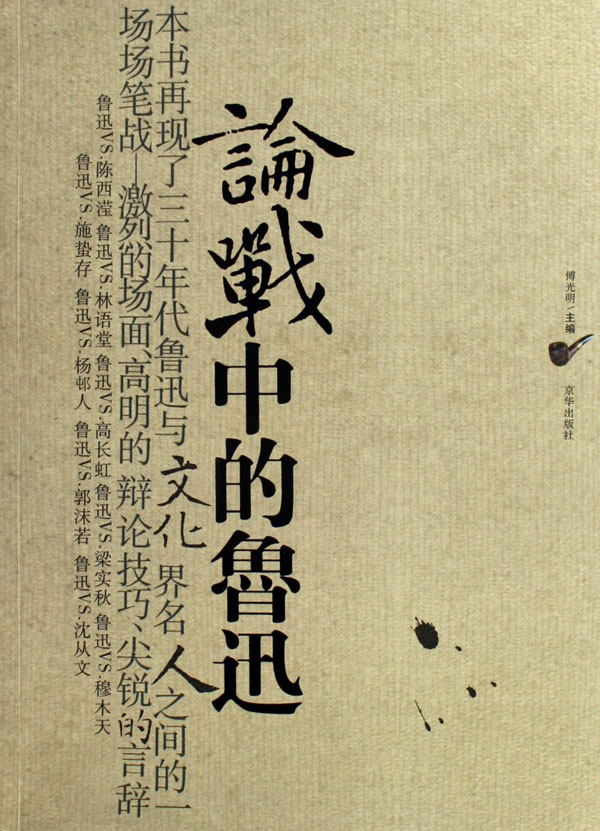 傅光明/主编
京华出版社
論戰中的魯迅
本书再现了三十年代鲁迅与文化界名人之间的一
场场笔战—激烈的场面、高明的辩论技巧、尖锐的言辞
鲁迅VS.陈西滢 鲁迅VS.林语堂 鲁迅VS.高长虹 鲁迅VS.梁实秋 鲁迅VS.穆木天
鲁迅VS.施蛰存 鲁迅VS.杨邨人 鲁迅VS.郭沫若 鲁迅VS.沈从文